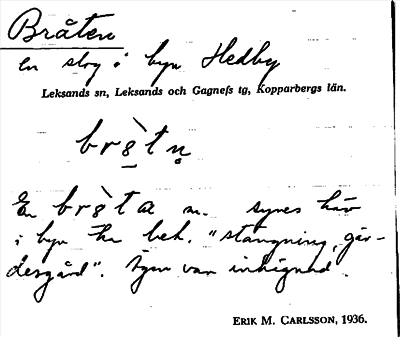 Bråten
en stog i byn Hedby
Leksands sn, Leksands och Gagnefs tg, Kopparbergs län.
br8̀tn̥
En br8̀ta m. synes här
i byn ha bet. "stängning, gär-
desgård". Ägan var inhägnad.
ERIK M. CARLSSON, 1936.